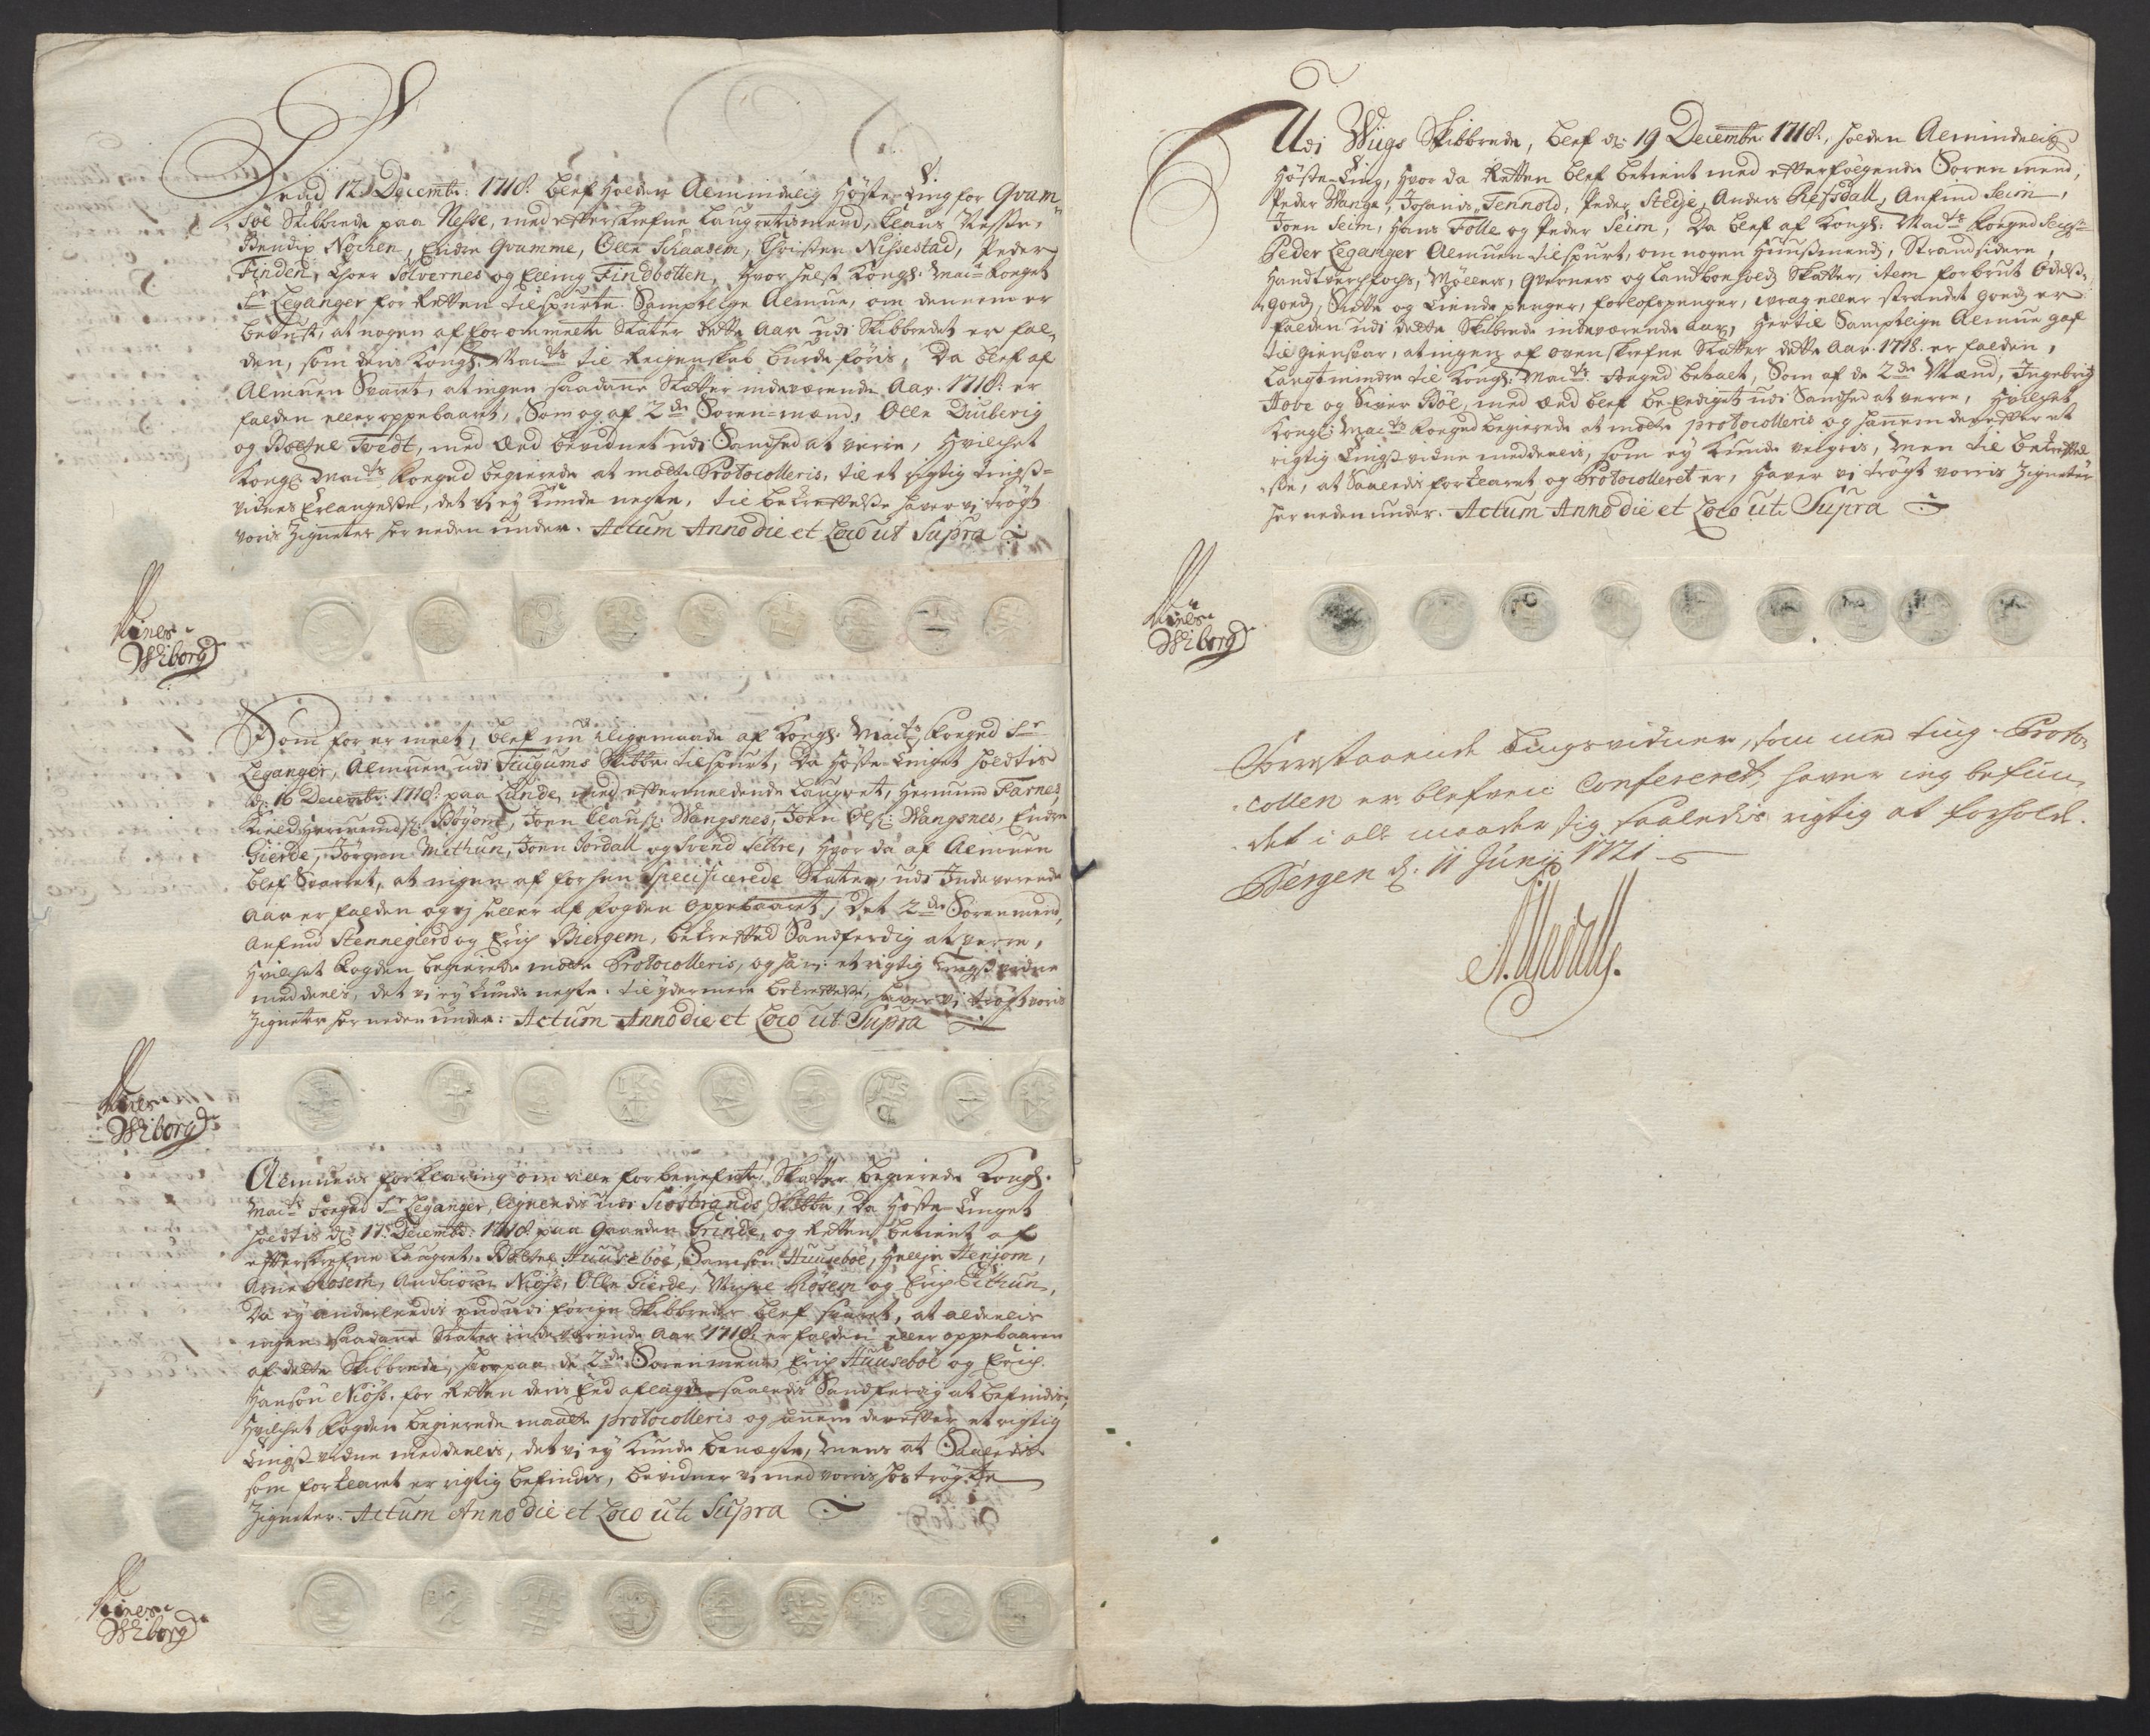 Dend 12 Decembr: 1718. blef holden Almindelig Høste-Ting for Qvam-
søe Skibbrede paa Nesse, med efterskrefne Laugrettismend, Claus Nesse,
Bendix Nochen, Endre Qvamme, Olle Schaasem, Christen Nessestad, Peder
Finden, Thoer Solvernes og Elling Findbotten, Hvor helst Kongl: Mai:ts Foeget
Sr Leganger for Retten tilspurte Samptlige Almue, om dennem er
bevust, at nogen af forommelte Skatter dette Aar udi Skibbredet er fal-
den, som deris Kongl: Mai:ts til Reigenskab burde føris, Da blef af
Almuen Svaret, at ingen saadanne Skatter indeværende Aar 1718. er
falden eller oppebaaret, Som og af 2de Soren-mænd, Olle Diuberig
og Bothel Tvedt, med Æed bevidnet udi Sandhed at verre, Hvilchet
Kongl: Mai:ts Foeged begierede at motte Protocolleris, til et rigtig Tingß-
vidnes Erlangelße, det vi ey kunde negte, til bekreftelße haver vi trøgt
voris Zigneter her neden under. Actum Anno die et Loco ut Supra
Niels
Wiborg
Som for er melt, blef nu i ligemaade af Kongl: Mai:ts Foeged Sr
Leganger, Almuen udi Tiugums Skibbr: tilspurt, Da Høste-Tinget holdtis
d: 16 Decembr: 1718. paa Lunde, med eftermeldende Laugret, Hermund Farnes,
Kield Hermundß: Bøyom, Joen Clausß: Wangsnes, Joen Olß: Wangsnes, Endre
Gierde, Jørgen Methun, Joen Jordall og Svend Settre, Hvor da af Almuen
blef Svarret, at ingen af for hen Specificerede Skatter, udi Indeverrende
Aar er falden og ej heller af fogden oppebaaret, Det 2de Sorenmend,
Anfind Stennegierd og Erich Biergem, bekrefted Sandferdig at verre,
Hvilchet Fogden begierede motte Protocolleris, og ham: et rigtig Tingßvidne
meddeelis, det vi ey kunde negte. til ydermere bekreftelse, haver vi trøgt voris
Zigneter her neden under: Actum Anno die et Loco ut Supra
Niels
Wiborg
Almuens forklaring om alle forbenefnte Skatter begierede Kongl:
Mai:ts Foeged Sr Leganger, lignendis udi Siøstrands Skibbr, Da Høste-Tinget
holdtis d: 17 Decembr: 1718. paa Gaarden Grinde, og Retten betient af
efterskrefne Laugret. Botthel Huuseböe, Samson Huuseböe, Hellje Henjom,
Arne Rosem, Andbiørn Niøß, Olle Gierde, Michel Röösem og Erich Fithun,
Da ey anderleedis end udi forige Skibbreder blef svaret, at aldeelis
ingen saadanne Skatter indeværende Aar 1718. er falden eller oppebaaren
af dette Skibbrede, Hvorpaa de 2de Sorenmend Erich Huuseböe og Erich
Hansøn Niøß. for Retten deris Eed aflagde saaledis Sandferdig at befindis,
Hvilchet Fogden begierede maatte protocolleris og hannem derefter et rigtig
Tingß-vidne meddeelis, det vi ey kunde benegte, Mens at Saaledis
som forklaret er rigtig befindis, bevidner vi med vorris hostrøgte
Zigneter. Actum Anno die et Loco ut Supra
Niels
Wiborg
Udi Wiigs Skibbrede, blef d: 19 Decembr: 1718. holden Almindelig
Høste-Ting, Hvor da Retten blef betient med efterfølgende Soren mend,
Peder Wange, Johanes Tennold, Peder Stedje, Anders Refsdall, Anfind Seim,
Joen Seim, Hans Folle og Peder Seim, Da blef af Kongl: Mai:ts Foeged
Peder Leganger Almuen tilspurt, om nogen Huußmend, Strandsidere,
Handtverchsfochs, Møllers, Qverners og Landboeholds Skatter, item forbrut Odelß-
goeds, Siette og Tiende penger, forlofspenger, vrag eller strandet goeds er
falden udi dette Skibrede indeværende Aar, hertil Samptlige Almue gaf
til giensvar, at ingen af ovenskrefne Skatter dette Aar 1718. er falden,
langt mindre til Kongl: Mai:ts Foeged betalt, Som af de 2de Mænd, Ingebrigt
Hove og Siver Böe, med Æed blef be-Eediget udi Sandhed at verre, Hvilchet
Kongl: Mai:ts Foeged begierede at motte protocolleris og hannem derefter et
rigtig Tingßvidne meddeelis, som ey kunde veigris, Men til bekreftel-
se, at Saaledis forklaret og Protocolleret er, haver vi trögt vorris Zigneter
her neden under. Actum Anno die et Loco ut Supra
Niels
Wiborg
Forrestaaende Tingsvidner, som med ting-Proto-
collen er blefven Confereret, haver ieg befun-
det i alle maader sig saaledis rigtig at forholde.
Bergen d. 11 Junij 1721